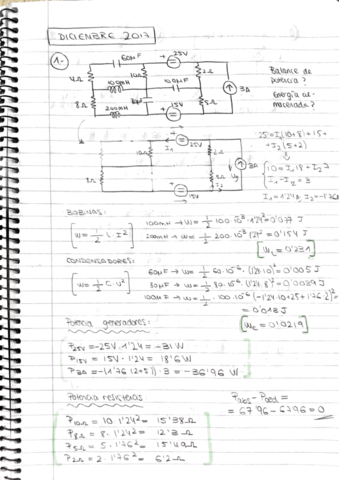 DICIEMBRE 2017
1.-
60μF
25V
4Ω
10Ω
2Ω
100mH
3A
8Ω
5Ω
200mH
15V
Balance de
potencia?
Energía al-
macenada?
25 = I₁(10+8)+15+
-I₂(5+2)
10 = I₁18 + I₂7
I₁ - I₂ = 3
I₁ = 1'24, I₂ = -1'76
10Ω
I₁
25V
2Ω
3A
8Ω
5Ω
I₂
15V
BOBINAS:
[W = 1/2 L·I²]
100mH → W = 1/2 · 100·10⁻³ · 1'24² = 0'077 J
200mH → W = 1/2 · 200·10⁻³ · 1'24² = 0'154 J
[W_L = 0'231]
CONDENSADORES:
[W = 1/2 · C · U²]
60μF → W = 1/2 · 60·10⁻⁶ · (1'24·10)² = 0'005 J
80μF → W = 1/2 · 80·10⁻⁶ · (1'24·8)² = 0'0039 J
100μF → W = 1/2 · 100·10⁻⁶ (-1'24·10+25+1'76·2)² =
= 0'013 J
[W_C = 0'0219]
Potencia generadores:
P25V = -25V · 1'24 = -31 W
P15V = 15V · 1'24 = 18'6 W
P3A = -(1'76 (2+5)) · 3 = -36'96 W
Potencia resistencias
P10Ω = 10 · 1'24² = 15'38Ω
P8Ω = 8 · 1'24² = 12'3 Ω
P5Ω = 5 · 1'76² = 15'49Ω
P2Ω = 2 · 1'76² = 6'2Ω
Pabs - Pced =
= 67'96 - 67'96 = 0